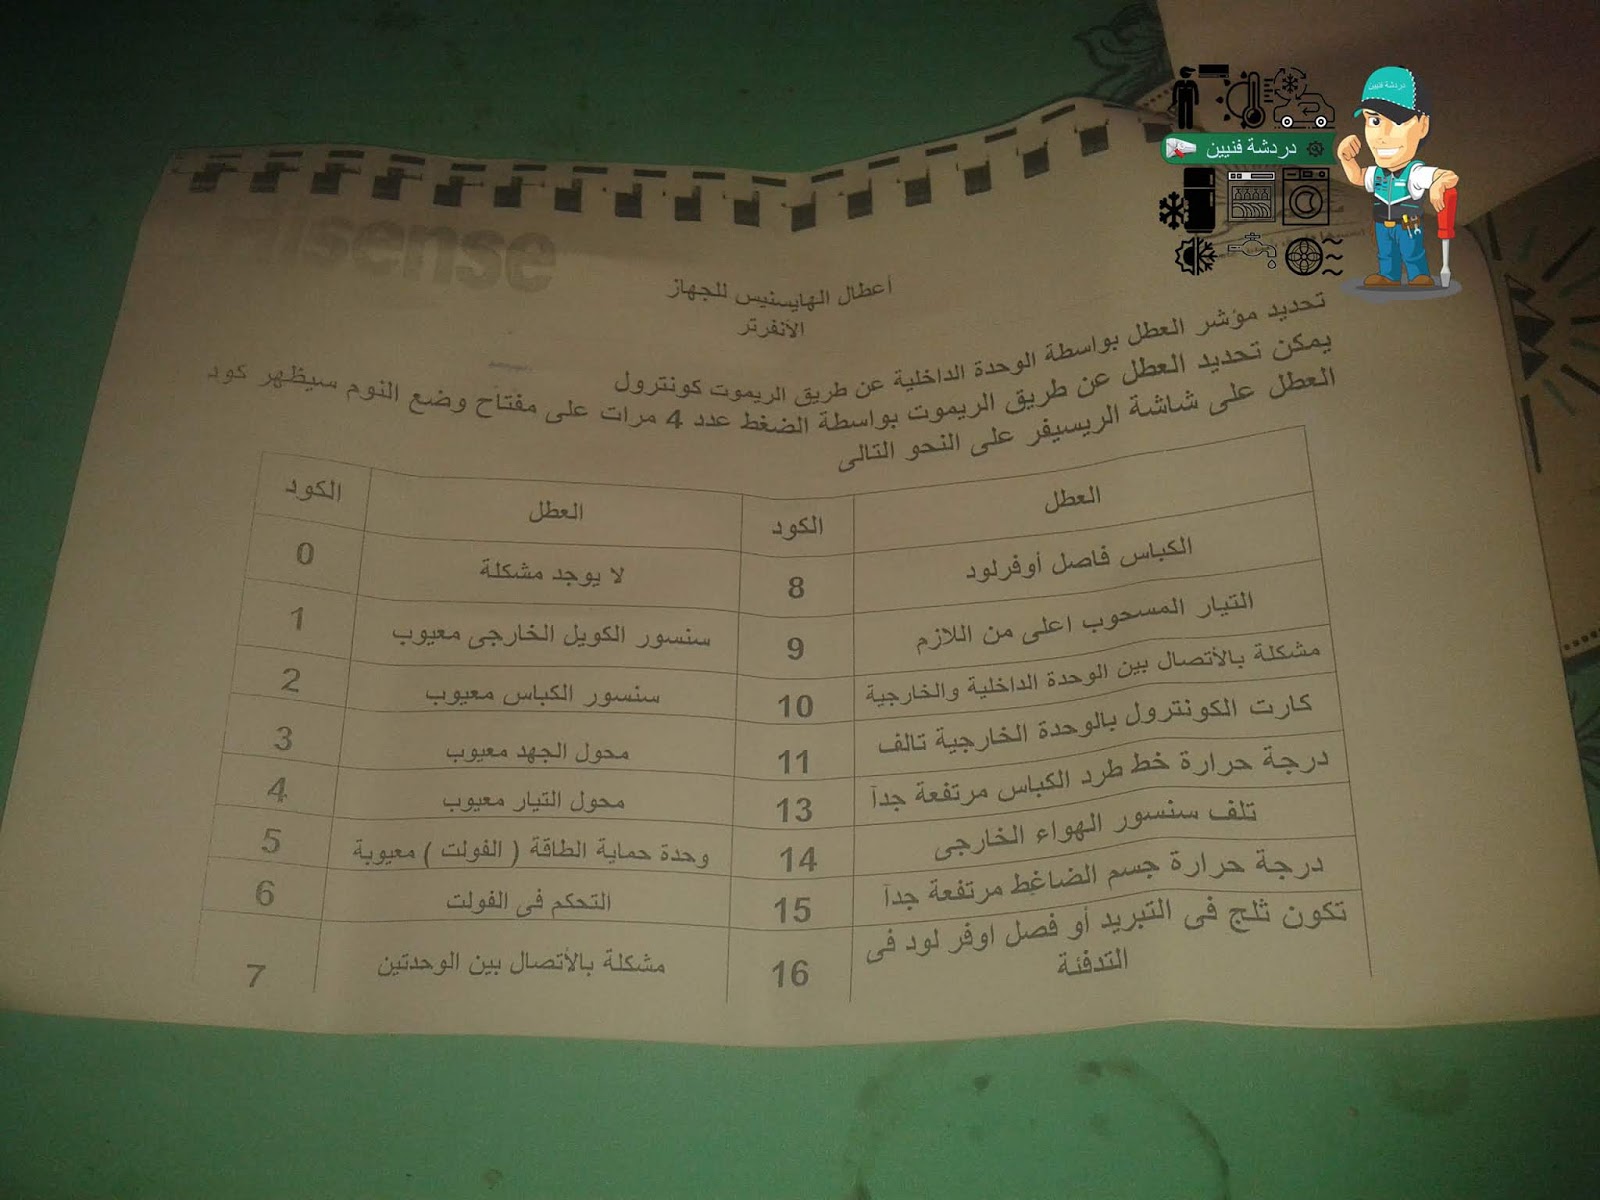 دردشة فنيين
دردشة فنيين
Hisense
أعطال الهايسنيس للجهاز
الأنفرتر
تحديد مؤشر العطل بواسطة الوحدة الداخلية عن طريق الريموت كونترول
يمكن تحديد العطل عن طريق الريموت بواسطة الضغط عدد 4 مرات على مفتاح وضع النوم سيظهر كود
العطل على شاشة الريسيفر على النحو التالى
العطل الكود العطل الكود
الكباس فاصل أوفرلود 8 لا يوجد مشكلة 0
التيار المسحوب اعلى من اللازم 9 سنسور الكويل الخارجى معيوب 1
مشكلة بالأتصال بين الوحدة الداخلية والخارجية 10 سنسور الكباس معيوب 2
كارت الكونترول بالوحدة الخارجية تالف 11 محول الجهد معيوب 3
درجة حرارة خط طرد الكباس مرتفعة جدآ 13 محول التيار معيوب 4
تلف سنسور الهواء الخارجى 14 وحدة حماية الطاقة ( الفولت ) معيوبة 5
درجة حرارة جسم الضاغط مرتفعة جدآ 15 التحكم فى الفولت 6
تكون ثلج فى التبريد أو فصل اوفر لود فى 16 مشكلة بالأتصال بين الوحدتين 7
التدفئة